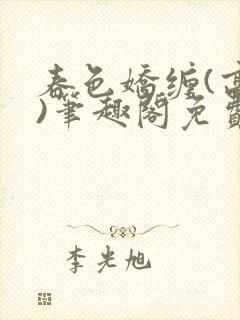 春色娇缠(高
)笔趣阁免费
李光旭